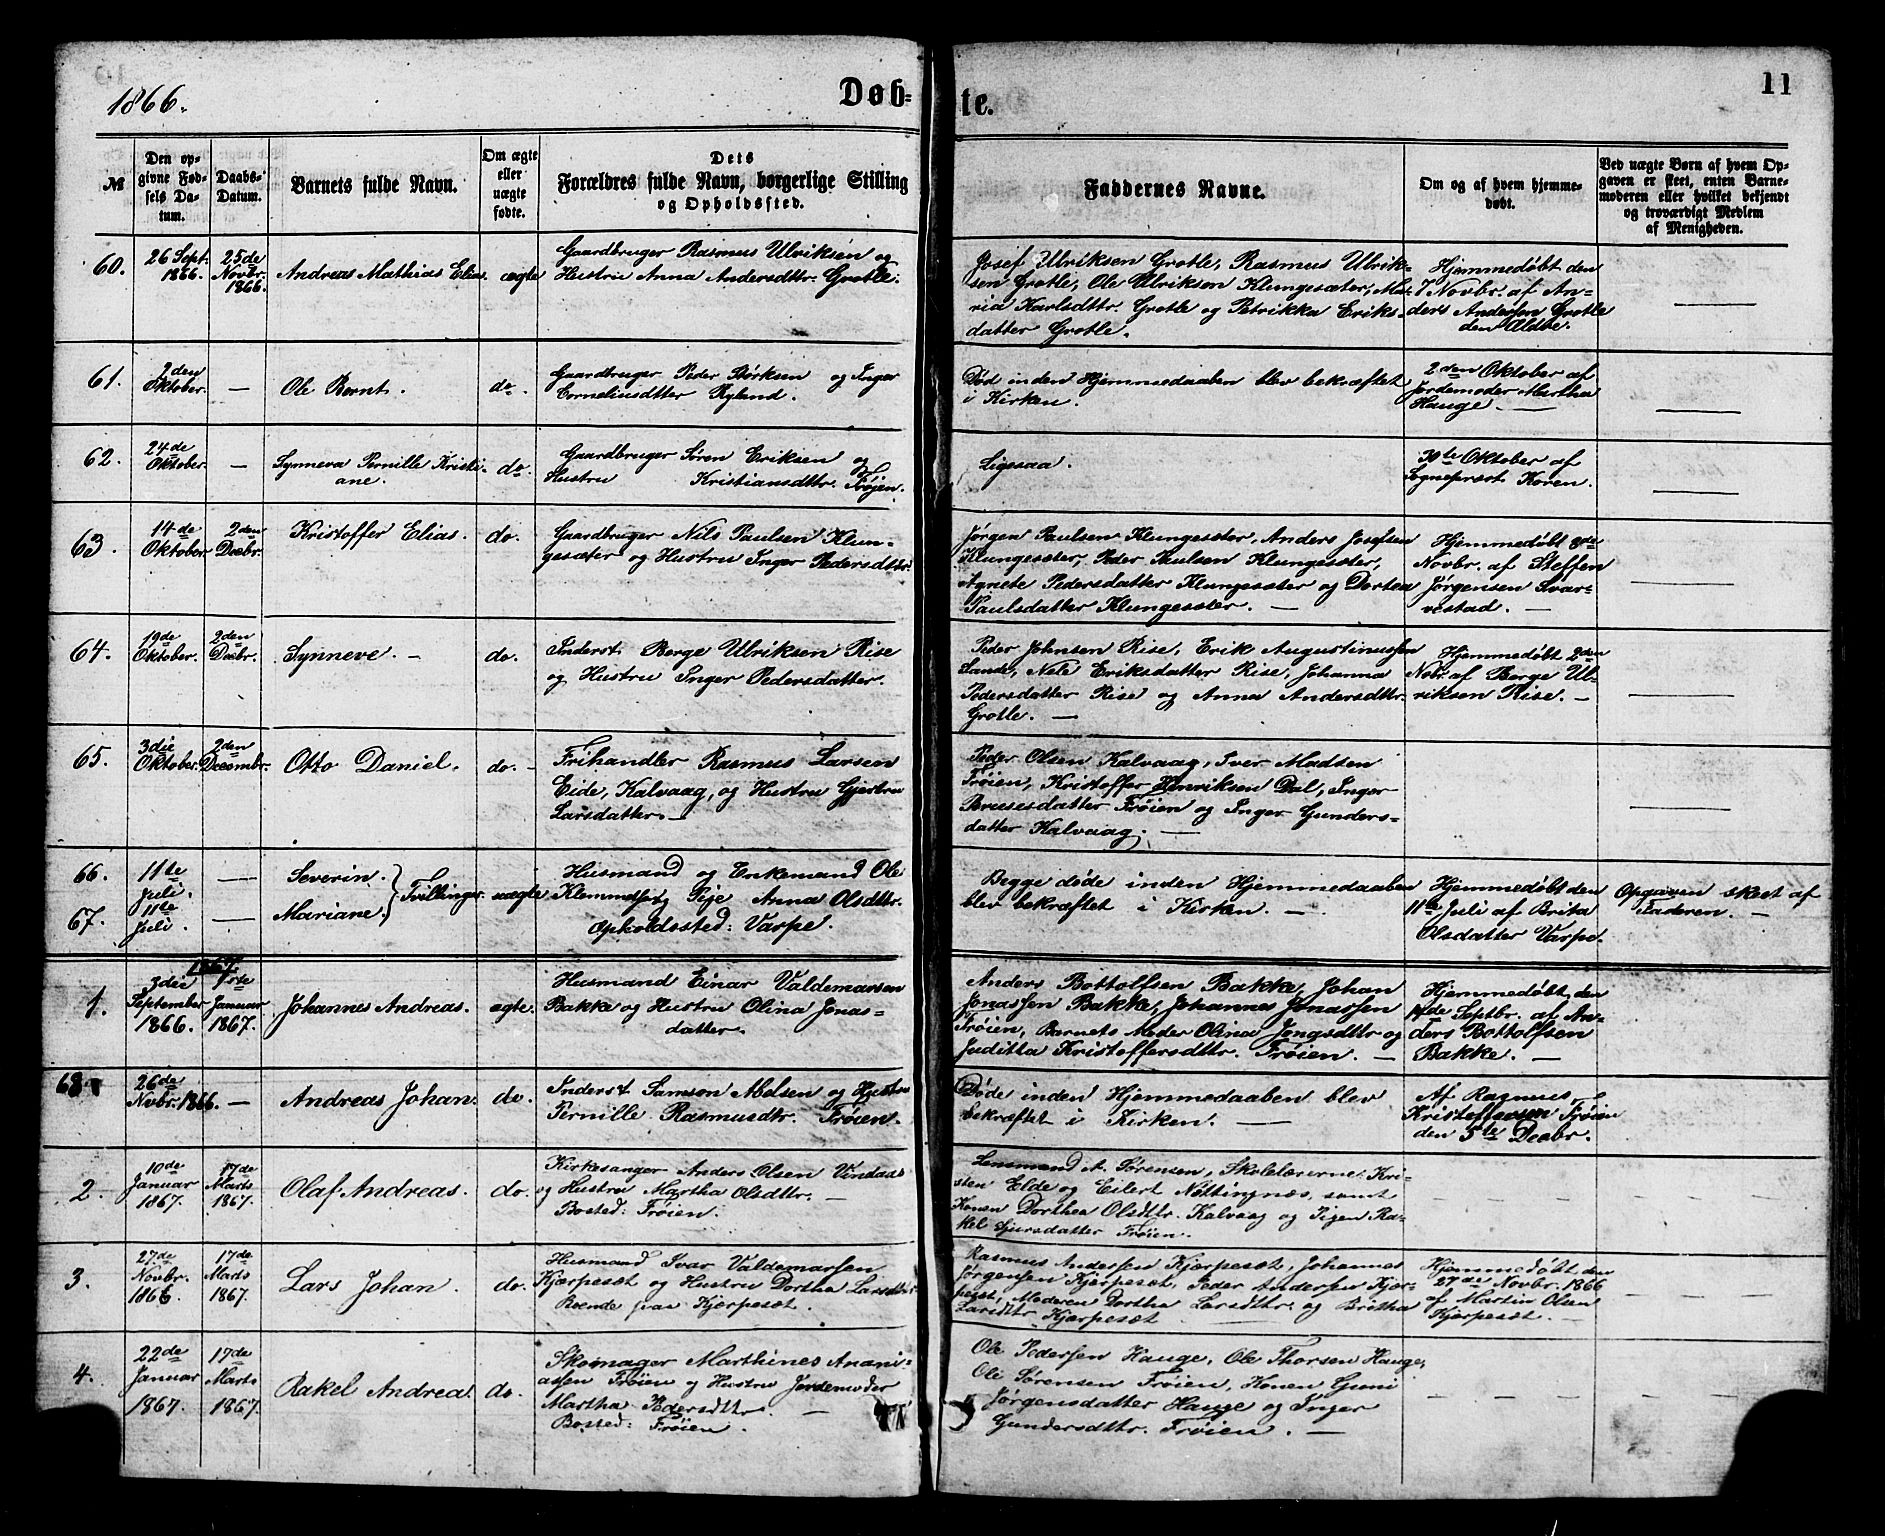 1866.
Døb-
te.
11
№
Den op-
givne Fød-
sels Da-
tum.
Daabs-
Datum.
Barnets fulde Navn.
Om ægte
eller
uægte
fødte.
Dets
Forældres fulde Navn, borgerlige Stilling
og Opholdssted.
Faddernes Navne.
Om og af hvem hjemme-
døbt.
Ved uægte Børn af hvem Op-
gaven er skeet, enten Barne-
moderen eller hvilket bekjendt
og troværdigt Medlem
af Menigheden.
60.
26 Sept.
1866.
25de
Novbr.
1866.
Andreas Mathias Elias.
ægte
Gaardbruger Rasmus Ulriksen og
Hustru Anna Andersdttr. Grotle.
Josef Ulriksen Grotle, Rasmus Ulrik-
sen Grotle, Ole Ulriksen Klungesæter, Ma-
ria Karlsdttr. Grotle og Petrikka Eriks-
datter Grotle.
Hjemmedøbt den
7 Novbr. af An-
ders Andersen Grotle
den Ældre.
61.
2den
Oktober.
—
Ole Bernt.
do.
Gaardbruger Peder Størksen og Inger
Corneliusdtter Ryland.
Død inden Hjemmedaaben blev bekræftet
i Kirken.
2den Oktober af
Jordemoder Martha
Hauge. —
62.
24de
Oktober.
—
Synneva Pernille Kristi-
ane.
do.
Gaardbruger Søren Eriksen og
Hustru Kristiansdttr. Frøjen.
Ligesaa.
30te Oktober af
Sognepræst Koren.
63.
14de
Oktober
2den
Decbr.
Kristoffer Elias.
do.
Gaardbruger Nils Paulsen Klun-
gesæter og Hustru Inger Pedersdttr.
Jørgen Paulsen Klungesæter, Anders Josefsen
Klungesæter, Peder Paulsen Klungesæter,
Agnete Pedersdatter Klungesæter og Dortea
Paulsdatter Klungesæter. —
Hjemmedøbt 8de
Novbr. af Steffen
Jørgensen Svar-
vestad. —
64.
19de
Oktober.
2den
Decbr.
Synneve. —
do.
Inderst Børge Ulriksen Rise
og Hustru Inger Pedersdatter.
Peder Johnsen Rise, Erik Augustinussen
Sande, Nele Eriksdatter Rise, Johanna
Pedersdatter Rise og Anna Andersdttr.
Grotle. —
Hjemmedøbt 2den
Novbr. af Børge Ul-
riksen Rise. —
65.
3die
Oktober.
2den
Decembr.
Otto Daniel.
do. —
Frihandler Rasmus Larsen
Eide, Kalvaag, og Hustru Gjertru
Larsdatter. —
Peder Olsen Kalvaag, Iver Madsen
Frøien, Kristoffer Henriksen Dal, Inger
Brusesdatter Frøien og Inger Gunders-
datter Kalvaag. —
66.
11te
Juli.
—
Severin.
67.
11te
Juli.
—
Mariane.
Tvillinger.
uægte
Husmand og Enkemand Ole
Klemmetsen Pige Anna Olsdttr.
Opholdssted: Varpe.
Begge døde inden Hjemmedaaben
blev bekræftet i Kirken. —
Hjemmedøbt den
11te Juli af Brita
Olsdatter Varpe.
Opgaven skeet af
Faderen. —
1867
1.
3die
September
1866.
1ste
Januar
1867.
Johannes Andreas.
ægte.
Husmand Einar Valdemarsen
Bakke og Hustru Olina Jonas-
datter.
Anders Bottolfsen Bakke, Johan
Jonassen Bakke, Johannes Jonassen
Frøien, Barnets Moder Olina Jonasdttr og
Juditta Kristoffersdttr. Frøien. —
Hjemmedøbt den
14de Septbr. af An-
ders Bottolfsen
Bakke. —
68
26de
Novbr. 1866.
—
Andreas Johan.
do.
Inderst Samson Abelsen og Hustru
Pernille Rasmusdtr. Frøien.
Døde inden Hjemmedaaben blev
bekræftet i Kirken. —
Af Rasmus
Kristoffersen Frøien
den 5te Decbr.
2.
10de
Januar
1867.
17de
Marts
1867.
Olaf Andreas.
do.
Kirkesanger Anders Olsen Vindaas
og Hustru Martha Olsdttr. —
Bosted: Frøien.
Lensmand A. Sørensen, Skolelærerne Kri-
sten Elde og Eilert Nøttingnæs, samt
Konen Dorthea Olsdttr. Kalvaag og Pigen Ra-
kel Sjursdatter Frøien.
3.
27de
Novbr.
1866.
17de
Marts
1867.
Lars Johan.
do.
Husmand Ivar Valdemarsen
Kjærpesæt og Hustru Dorthea Larsdttr.
Boende paa Kjærpesæt.
Rasmus Andersen Kjærpesæt, Johannes
Jørgensen Kjærpesæt, Peder Andersen Kjær-
pesæt, Moderen Dorthea Larsdttr. og Brethe
Larsdttr. Kjærpesæt
Hjemmedøbt den
27de Novbr. 1866
af Martin Olsen
Kjærpesæt.
4.
22de
Januar
1867.
17de
Marts
1867.
Rakel Andrea.
do.
Skomager Marthines Anani-
assen Frøien og Hustru Jordemoder
Martha Pedersdttr. —
Bosted: Frøien.
Ole Pedersen Hauge, Ole Thorsen Hauge,
Ole Sørensen Frøien, Konen Guni
Jørgensdatter Hauge og Inger
Gundersdttr. Frøien. —